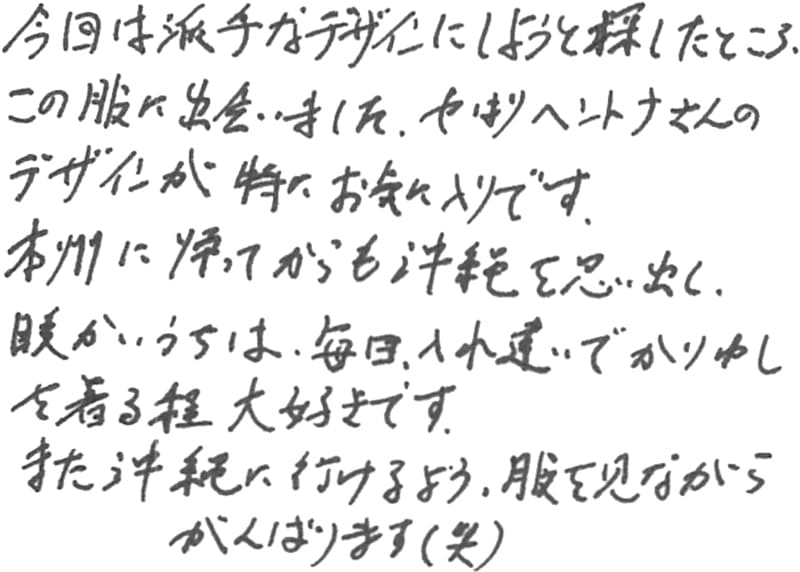 今回は派手なデザインにしようと探したところ、
この服に出会いました。やはりヘントナさんの
デザインが特にお気に入りです。
本州に帰ってからも沖縄を思い出し、
暖かいうちは、毎日、入れ違いでかりゆし
を着る程大好きです。
また沖縄に行けるよう、服を見ながら
がんばります(笑)